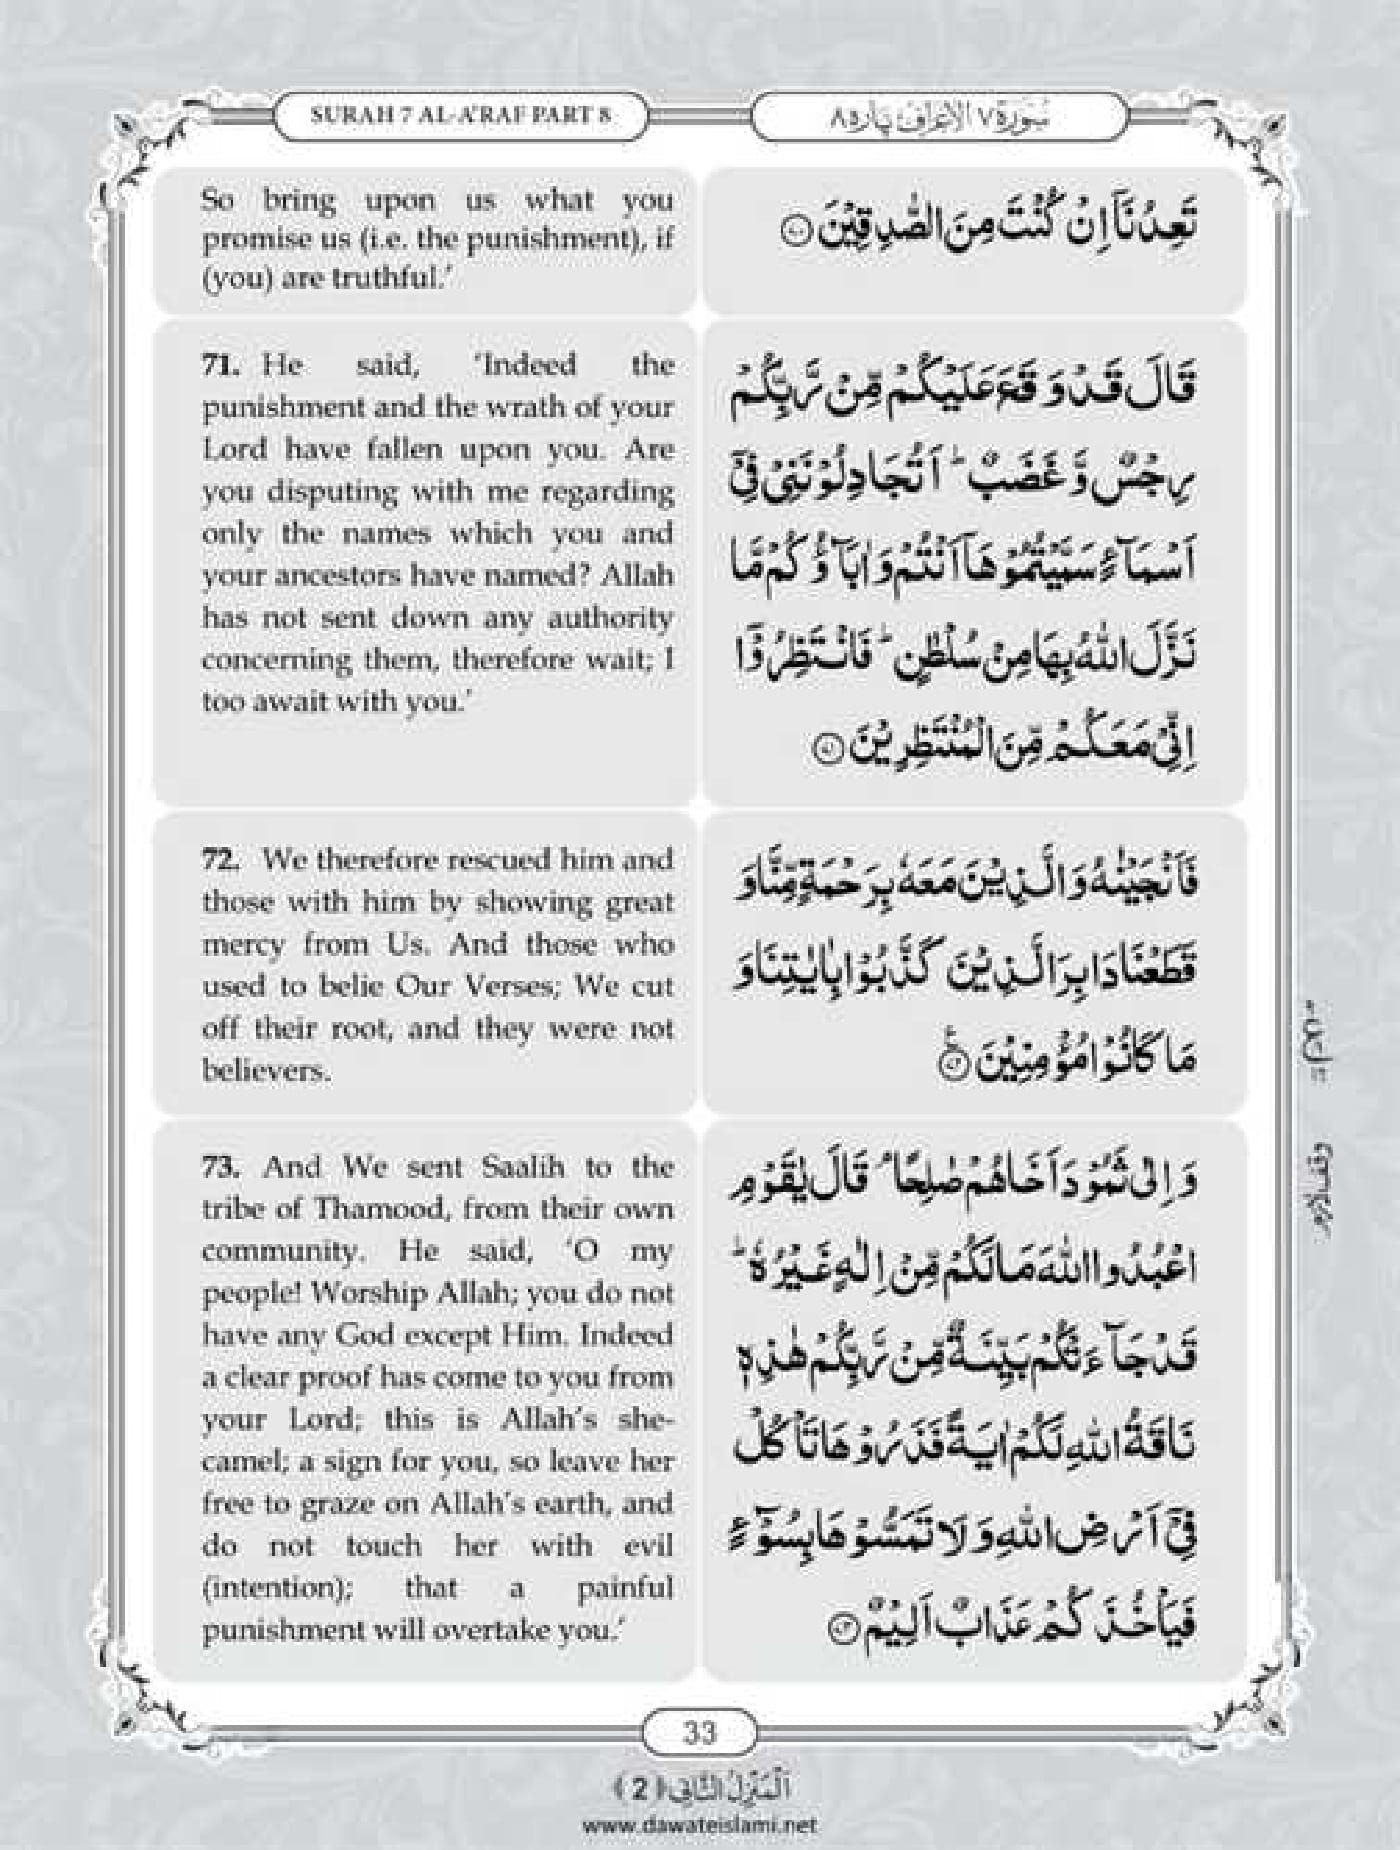 SURAH 7 AL-A'RAF PART 8
سُورَة ٧ الْاَعْرَاف پَارَه ٨
So bring upon us what you
promise us (i.e. the punishment), if
(you) are truthful.'
تَعِدُنَاۤ اِنْ كُنْتَ مِنَ الصّٰدِقِيْنَ ۝٧٠
71. He said, 'Indeed the
punishment and the wrath of your
Lord have fallen upon you. Are
you disputing with me regarding
only the names which you and
your ancestors have named? Allah
has not sent down any authority
concerning them, therefore wait; I
too await with you.'
قَالَ قَدْ وَقَعَ عَلَيْكُمْ مِّنْ رَّبِّكُمْ
رِجْسٌ وَّغَضَبٌ ؕ اَتُجَادِلُوْنَنِىْ فِىْۤ
اَسْمَآءٍ سَمَّيْتُمُوْهَاۤ اَنْتُمْ وَاٰبَآؤُكُمْ مَّا
نَزَّلَ اللّٰهُ بِهَا مِنْ سُلْطٰنٍ ؕ فَانْتَظِرُوْۤا
اِنِّىْ مَعَكُمْ مِّنَ الْمُنْتَظِرِيْنَ ۝٧١
72. We therefore rescued him and
those with him by showing great
mercy from Us. And those who
used to belie Our Verses; We cut
off their root, and they were not
believers.
فَاَنْجَيْنٰهُ وَالَّذِيْنَ مَعَهٗ بِرَحْمَةٍ مِّنَّا وَ
قَطَعْنَا دَابِرَ الَّذِيْنَ كَذَّبُوْا بِاٰيٰتِنَا وَ
مَا كَانُوْا مُؤْمِنِيْنَ ۝٧٢
73. And We sent Saalih to the
tribe of Thamood, from their own
community. He said, 'O my
people! Worship Allah; you do not
have any God except Him. Indeed
a clear proof has come to you from
your Lord; this is Allah's she-
camel; a sign for you, so leave her
free to graze on Allah's earth, and
do not touch her with evil
(intention); that a painful
punishment will overtake you.'
وَ اِلٰى ثَمُوْدَ اَخَاهُمْ صٰلِحًا ۘ قَالَ يٰقَوْمِ
اعْبُدُوا اللّٰهَ مَا لَكُمْ مِّنْ اِلٰهٍ غَيْرُهٗ ؕ
قَدْ جَآءَتْكُمْ بَيِّنَةٌ مِّنْ رَّبِّكُمْ هٰذِهٖ
نَاقَةُ اللّٰهِ لَكُمْ اٰيَةً فَذَرُوْهَا تَاْكُلْ
فِىْۤ اَرْضِ اللّٰهِ وَلَا تَمَسُّوْهَا بِسُوْٓءٍ
فَيَاْخُذَكُمْ عَذَابٌ اَلِيْمٌ ۝٧٣
وقف لازم
33
اَلْمَنْزِلُ الثَّانِى ﴿2﴾
www.dawateislami.net